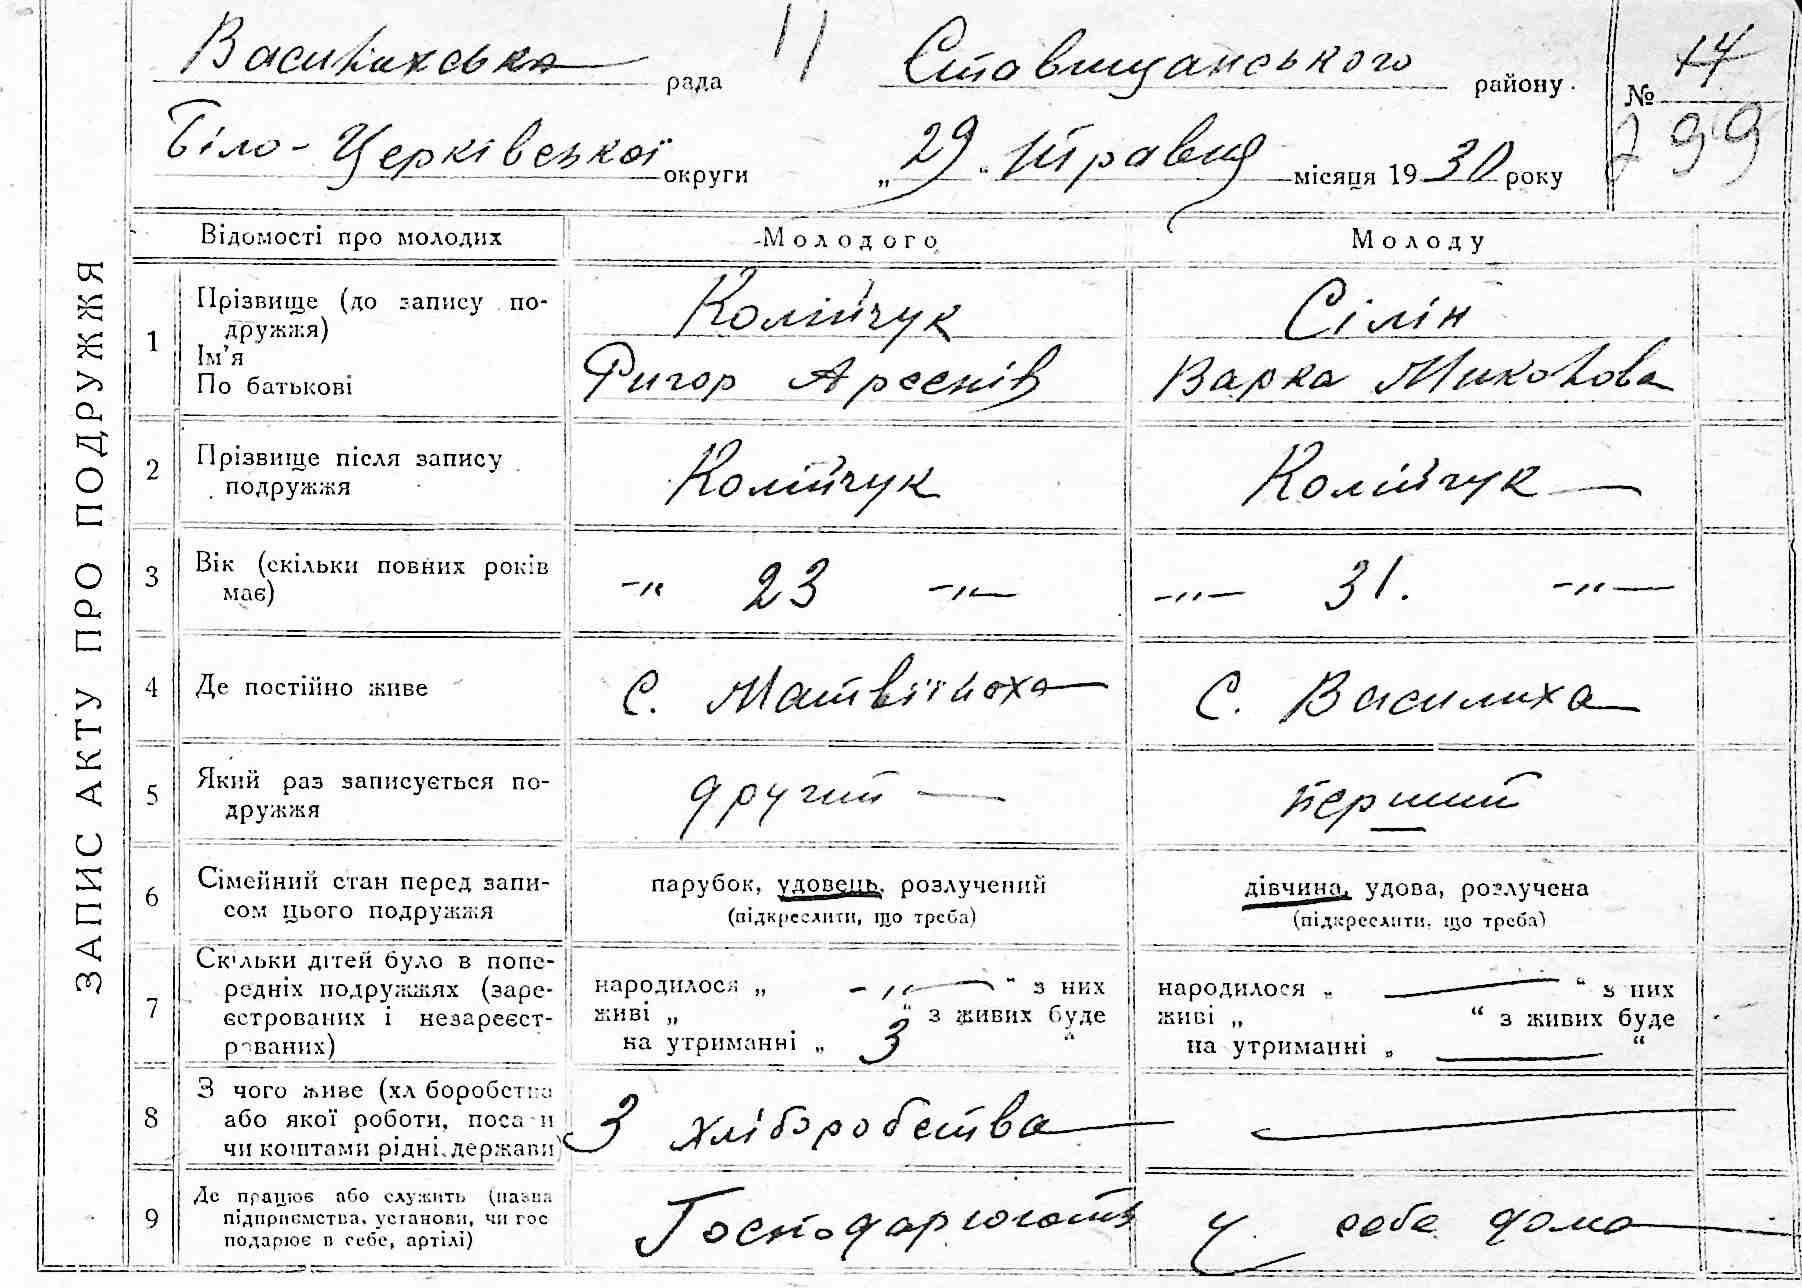 Василихська рада 11 Ставищанського району № 17
Біло-Церківської округи „29“ Травня місяця 1930 року 299
ЗАПИС АКТУ ПРО ПОДРУЖЖЯ
Відомості про молодих Молодого Молоду
1 Прізвище (до запису по-
дружжя) Колійчук Сілін
Ім'я
По батькові Григор Арсенів Варка Миколова
2 Прізвище після запису
подружжя Колійчук Колійчук
3 Вік (скільки повних років
має) -„ 23 -„- -„- 31. -„-
4 Де постійно живе С. Матвіїха С. Василиха
5 Який раз записується по-
дружжя другий перший
6 Сімейний стан перед запи-
сом цього подружжя парубок, удовець, розлучений дівчина, удова, розлучена
(підкреслити, що треба) (підкреслити, що треба)
7 Скільки дітей було в попе-
редніх подружжях (заре-
єстрованих і незареєст-
рованих)
народилося „ -„- “ з них народилося „ — “ з них
живі „ “ з живих буде живі „ “ з живих буде
на утриманні „ 3 “ на утриманні „ — “
8 З чого живе (хліборобства
або якої роботи, посади
чи коштами рідні, держави) З хліборобства —
9 Де працює або служить (назва
підприємства, установи, чи гос
подарює в себе, артілі) Господарюють у себе дома